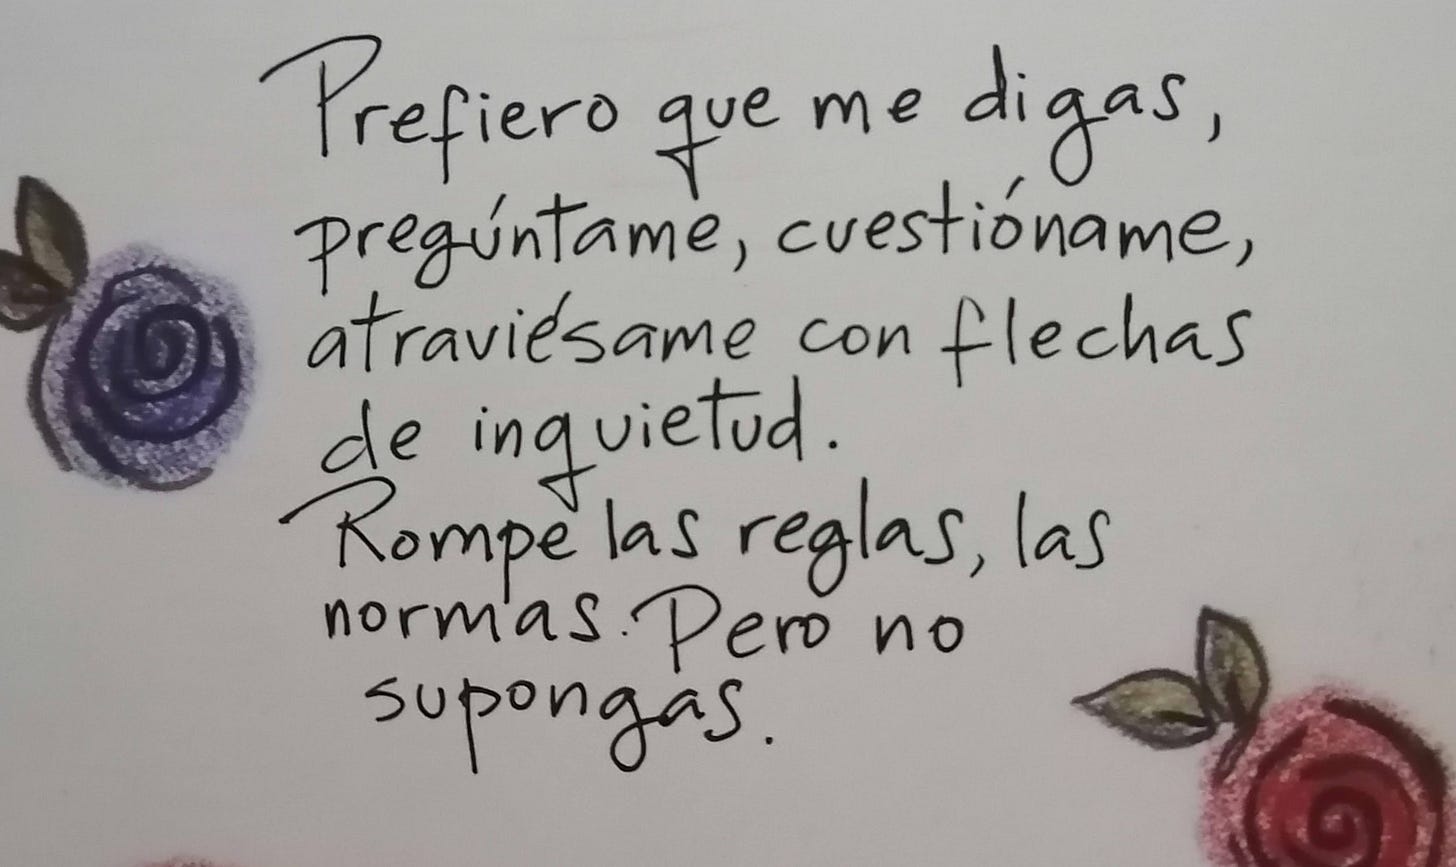 Prefiero que me digas,
pregúntame, cuestióname,
atraviésame con flechas
de inquietud.
Rompe las reglas, las
normas. Pero no
supongas.